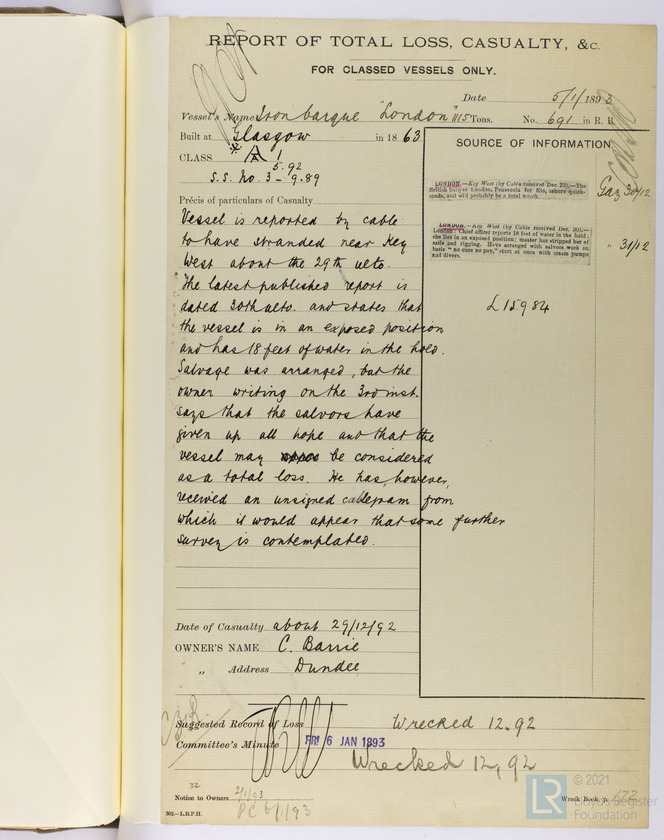 REPORT OF TOTAL LOSS, CASUALTY, &C.
FOR CLASSED VESSELS ONLY.
Date 5/1/1893
Vessel's Name Iron barque "London" 1115 Tons. No. 691 in R.B.
Built at Glasgow in 1863
CLASS A 1
5.92
S.S. No. 3 - 9.89
Précis of particulars of Casualty
Vessel is reported by cable
to have stranded near Key
West about the 29th ulto.
The latest published report is
dated 30th ulto. and states that
the vessel is in an exposed position
and has 18 feet of water in the hold.
Salvage was arranged, but the
owner writing on the 3rd inst.
says that the salvors have
given up all hope and that the
vessel may be considered
as a total loss. He has, however,
received an unsigned cablegram from
which it would appear that some further
survey is contemplated.
Date of Casualty about 29/12/92
OWNER'S NAME C. Barrie
„ Address Dundee
SOURCE OF INFORMATION.
LONDON.—Key West (by Cable received Dec. 29).—The
British barque London, Pensacola for Rio, ashore quick-
sands, and will probably be a total wreck.
Gaz 30/12
LONDON.—Key West (by Cable received Dec. 30).—
London: Chief officer reports 18 feet of water in the hold;
she lies in an exposed position; master has stripped her of
sails and rigging. Have arranged with salvors work on
basis "no cure no pay," start at once with steam pumps
and divers.
" 31/12
£15984
Suggested Record of Loss Wrecked 12.92
Committee's Minute FRI 6 JAN 1893
Wrecked 12,92
32
Notice to Owners 2/1/93
PC 6/1/93
Wreck Book, p. 672
302—L.R.P.H.
LR
© 2021
Lloyd's Register
Foundation